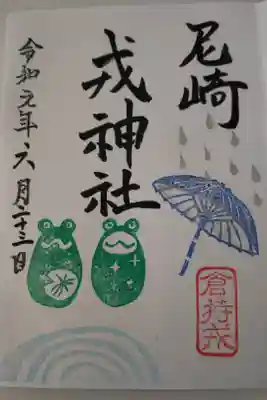 尼崎
戎神社
令和元年、六月二十三日
倉稲戎